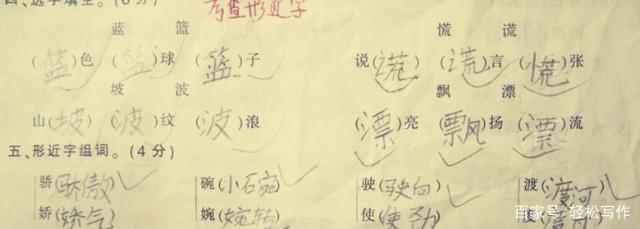 四、选字填空。(6分) 考查形近字
蓝 篮 慌 谎
(蓝)色 (篮)球 (篮)子 说(谎) (谎)言 (慌)张
坡 波 飘 漂
山(坡) (波)纹 (波)浪 (漂)亮 (飘)扬 (漂)流
五、形近字组词。(4分)
骄(骄傲) 碗(小石碗) 驶(驶向) 渡(渡河)
娇(娇气) 婉(婉转) 使(使劲)
百家号·轻松写作